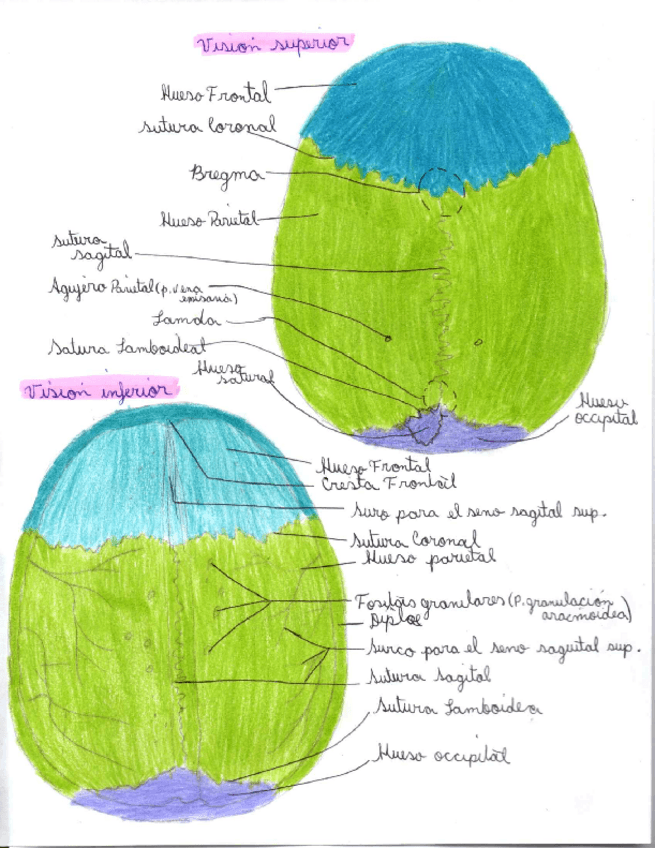 Vision superior
Hueso Frontal
sutura Coronal
Bregma
Hueso Parietal
sutura
sagital
Agujero Parietal (p. vena
emisaria)
Lamda
Satura Lamboideal
Hueso
satural
Hueso
occipital
Vision inferior
Hueso Frontal
Cresta Frontal
Suro para el seno sagital sup.
Sutura Coronal
Hueso parietal
Fositas granulares (p. granulación
aracnoidea)
Diploe
Surco para el seno saguital sup.
Sutura Sagital
Sutura Lamboidea
Hueso occipital